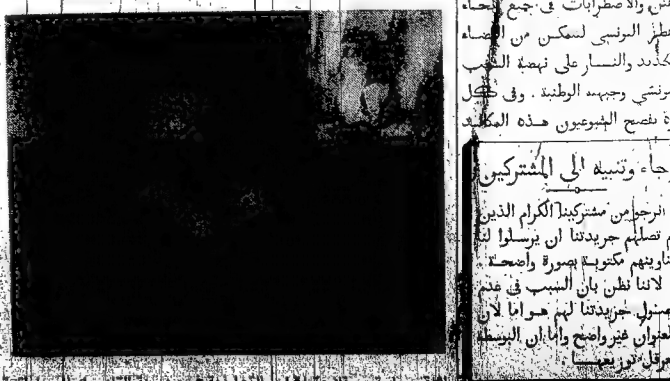 فتن والاضطرابات في جميع انحاء
قطر التونسي لتمكن من القضاء
والنسار على نهضة الشعب
تونسي وجبهته الوطنية . وفي كل
ة يفضح الشيوعيون هذه المكائد
رجاء وتنبيه الى المشتركين
انرجو من مشتركينا الكرام الذين
م تصلهم جريدتنا ان يرسلوا لنا
ناوينهم مكتوبة بصورة واضحة .
لاننا نظن بان السبب في عدم
صول جريدتنا لهم هو اما لان
لعنوان غير واضح واما ان البوسطه
عوقل توزيعها